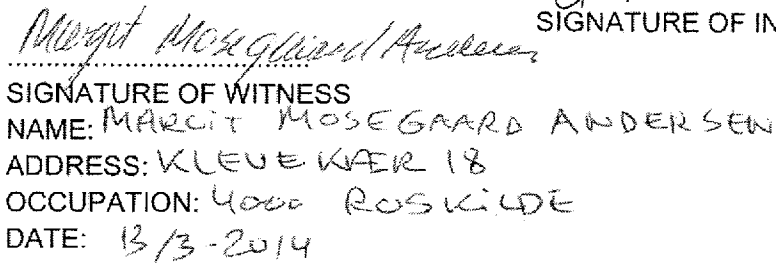 SIGNATURE OF IN
Margit Mosegaard Andersen
SIGNATURE OF WITNESS
NAME: MARGIT MOSEGAARD ANDERSEN
ADDRESS: KLEVEKÆR 18
OCCUPATION: 4000 ROSKILDE
DATE: 13/3-2014